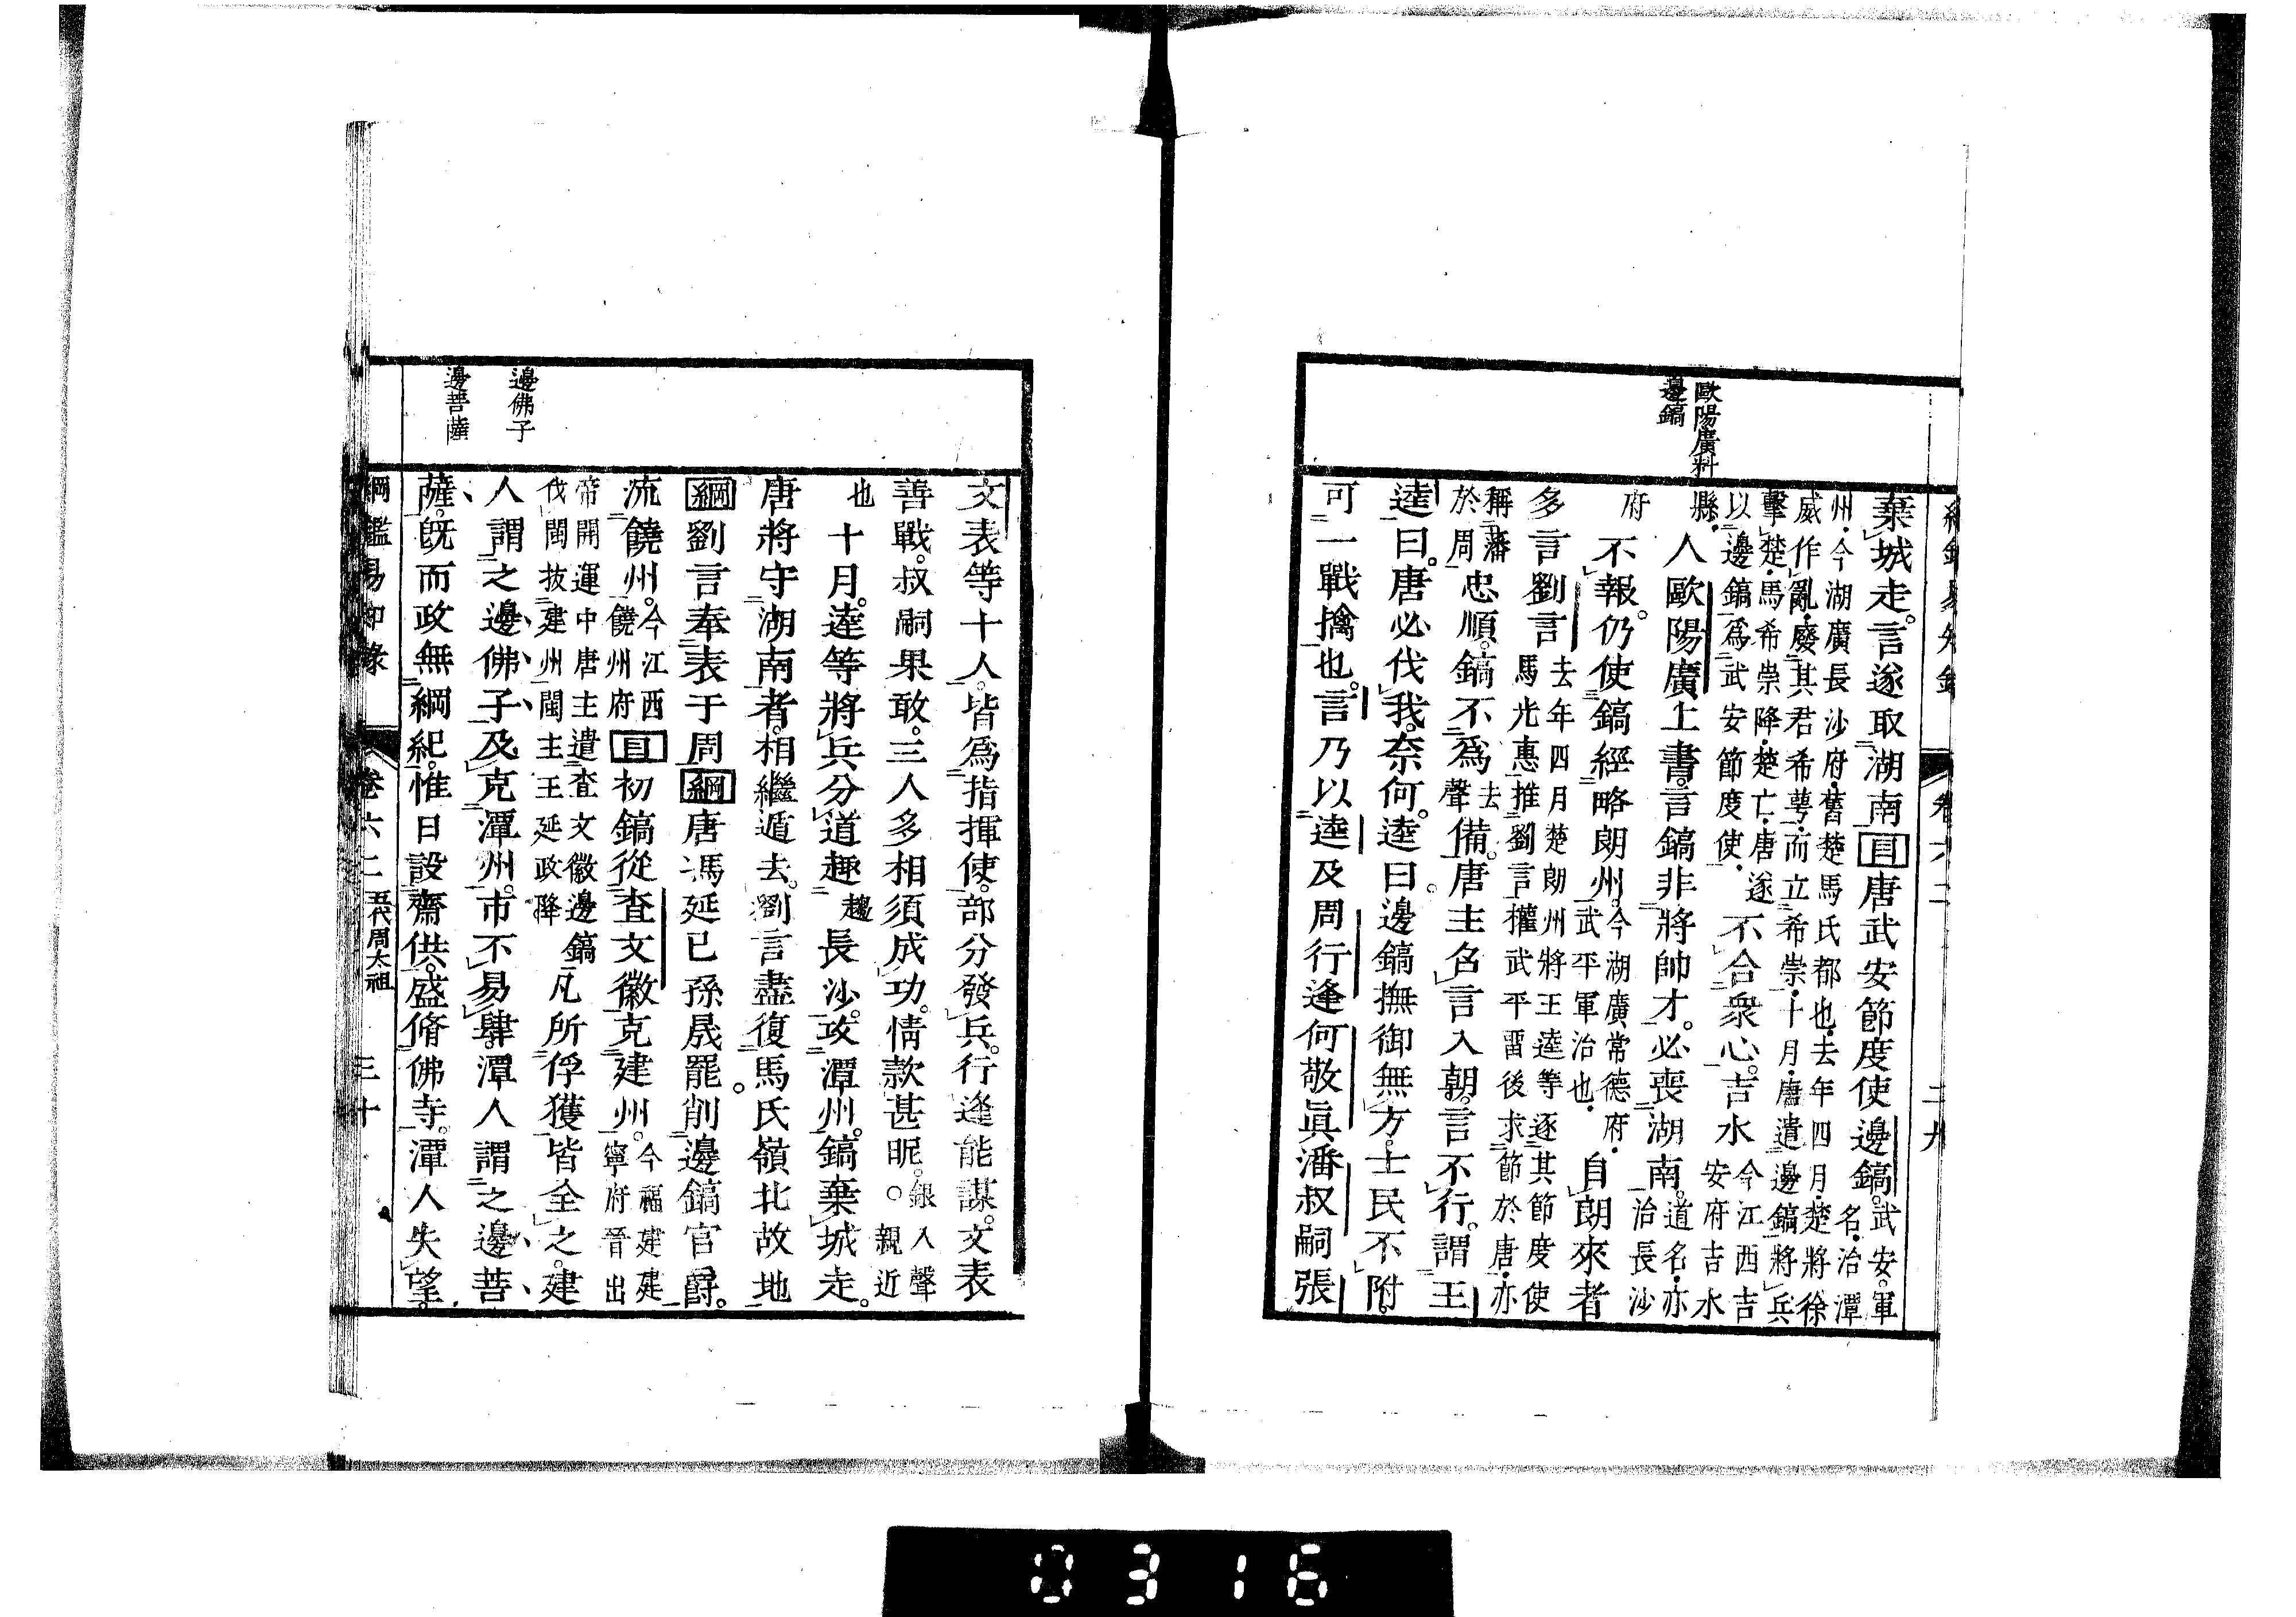 歐陽廣料
邊鎬
棄城走。言遂取湖南目唐武安節度使邊鎬。武安。軍名。治潭
州。今湖廣長沙府。舊楚馬氏都也。去年四月。楚將徐
威作亂。廢其君希萼。而立希崇。十月。唐遣邊鎬將兵
擊楚。馬希崇降。楚亡。唐遂
以邊鎬爲武安節度使。不合衆心。吉水今江西吉安府吉水
縣。人歐陽廣上書。言鎬非將帥才。必喪湖南。道名。亦治長沙
府不報。仍使鎬經略朗州。今湖廣常德府。武平軍治也。自朗來者
多言劉言去年四月楚朗州將王逵等逐其節度使馬光惠推劉言權武平畱後求節於唐。亦
稱藩於周忠順。鎬不爲去聲備。唐主召言入朝。言不行。謂王
逵曰。唐必伐我。奈何。逵曰。邊鎬撫御無方。士民不附。
可一戰擒也。言乃以逵及周行逢何敬眞潘叔嗣張
卷六二
二九
邊佛子
邊菩薩
文表等十人。皆爲指揮使。部分發兵。行逢能謀。文表
善戰。叔嗣果敢。三人多相須成功。情款甚昵。銀入聲。親近
也十月。逵等將兵分道趣趨長沙。攻潭州。鎬棄城走。
唐將守湖南者。相繼遁去。劉言盡復馬氏嶺北故地
綱劉言奉表于周綱唐馮延巳孫晟罷。削邊鎬官爵。
流饒州。今江西饒州府目初鎬從查文徽克建州。今福建建寧府晉出
帝開運中唐主遣查文徽邊鎬伐閩拔建州閩主王延政降。凡所俘獲皆全之。建
人謂之邊佛子及克潭州。市不易肆。潭人謂之邊菩
薩。旣而政無綱紀。惟日設齋供。盛脩佛寺。潭人失望。
綱鑑易知錄
卷六二
五代周太祖
三十
0316